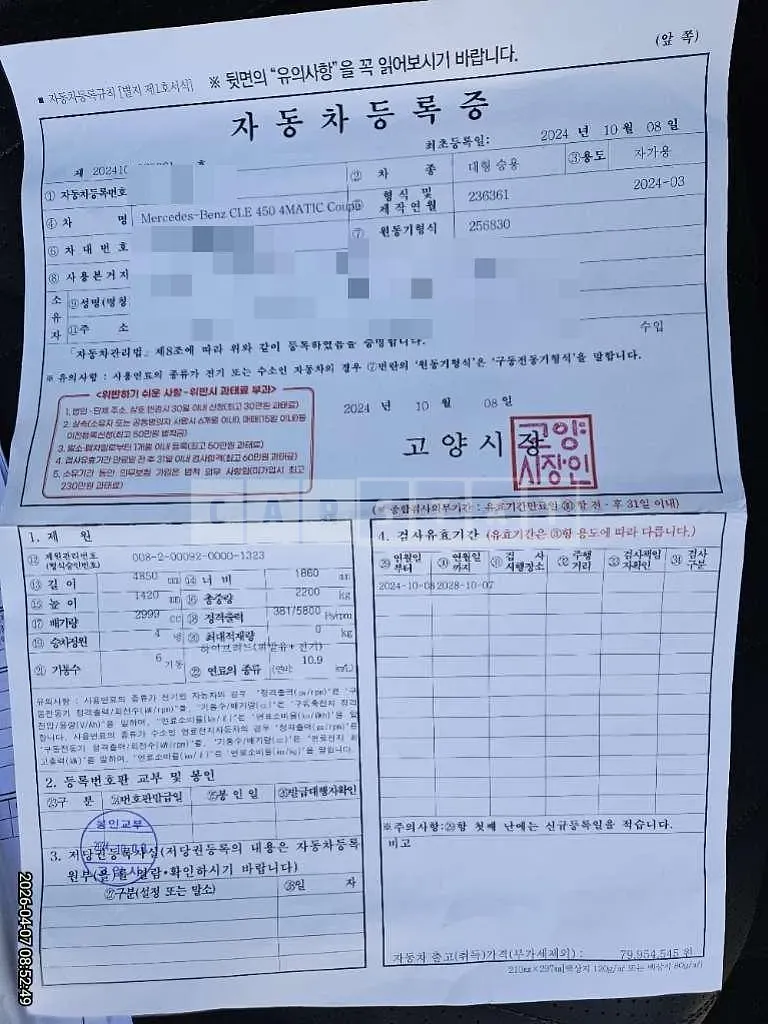 (앞 쪽)
■ 자동차등록규칙 [별지 제1호서식] ※ 뒷면의 "유의사항"을 꼭 읽어보시기 바랍니다.
자동차등록증
최초등록일: 2024 년 10 월 08 일
제 202410 호
① 자동차등록번호 ② 차 종 대형 승용 ③용도 자가용
④ 차 명 Mercedes-Benz CLE 450 4MATIC Coupe 형식 및 제작연월 236361 2024-03
⑥ 차 대 번 호 ⑦ 원동기형식 256830
⑧ 사 용 본 거 지
소유자 ⑨성명(명칭
⑪주 소
수입
「자동차관리법」 제8조에 따라 위와 같이 등록하였음을 증명합니다.
※ 유의사항 : 사용연료의 종류가 전기 또는 수소인 자동차의 경우 ⑦번란의 '원동기형식'은 '구동전동기형식'을 말합니다.
<위반하기 쉬운 사항-위반시 과태료 부과>
1. 법인·단체 주소, 상호 변경시 30일 이내 신청(최고 30만원 과태료)
2. 상속(소유자 또는 공동명의자 사망시 6개월 이내), 매매(15일 이내)등
이전등록신청(최고 50만원 범칙금)
3. 말소·폐차일로부터 1개월 이내 등록(최고 50만원 과태료)
4. 검사유효기간 만료일 전 후 31일 이내 검사합격(최고 60만원 과태료)
5. 소유기간 동안 의무보험 가입은 법적 의무 사항임(미가입시 최고
230만원 과태료)
2024 년 10 월 08 일
고 양 시 장
고양
시장인
(※ 종합검사의무기간 : 유효기간만료일 전·후 31일 이내)
1. 제 원
⑫ 제원관리번호 (형식승인번호) 008-2-00092-0000-1323
⑬ 길 이 4850 mm ⑭ 너 비 1860 mm
⑮ 높 이 1420 mm ⑯ 총중량 2200 kg
⑰ 배기량 2999 cc ⑱ 정격출력 381/5800 Ps/rpm
⑲ 승차정원 4 명 ⑳ 최대적재량 0 kg
㉑ 기통수 6 기통 ㉒ 연료의 종류 하이브리드(휘발유+전기) (연비 10.9 km/L)
유의사항 : 사용연료의 종류가 전기인 자동차의 경우 "정격출력(ps/rpm)"은 "구
동전동기 정격출력/회전수(kW/rpm)"를, "기통수/배기량(cc)"은 "구동축전지 정격
전압/용량(V/Ah)"을 말하며, "연료소비율(km/ℓ)"은 "연료소비율(km/kWh)"을 말
합니다. 사용연료의 종류가 수소인 연료전지자동차의 경우 "정격출력(ps/rpm)"은
"구동전동기 정격출력/회전수(kW/rpm)"를, "기통수/배기량(cc)"은 "연료전지 최
고출력(kW)"를 말하며, "연료소비율(km/ℓ)"은 "연료소비율(km/kg)"을 말합니다.
2. 등록번호판 교부 및 봉인
㉓구 분 ㉔번호판발급일 ㉕봉 인 일 ㉖발급대행자확인
봉인교부
3. 저당권등록사실(저당권등록의 내용은 자동차등록
원부(을)를 열람·확인하시기 바랍니다)
㉗구분(설정 또는 말소) ㉘일 자
4. 검사유효기간 (유효기간은 ③항 용도에 따라 다릅니다.)
㉙ 연월일 부터 ㉚ 연월일 까지 ㉛ 검 사 시행장소 ㉜ 주행 거리 ㉝ 검사책임 자확인 ㉞ 검사 구분
2024-10-08 2028-10-07
※주의사항:㉙항 첫째 난에는 신규등록일을 적습니다.
비고
자동차 출고(취득)가격(부가세제외) : 79,954,545 원
210㎜×297㎜[백상지 120g/㎡ 또는 백상지 80g/㎡]
2026-04-07 08:52:49